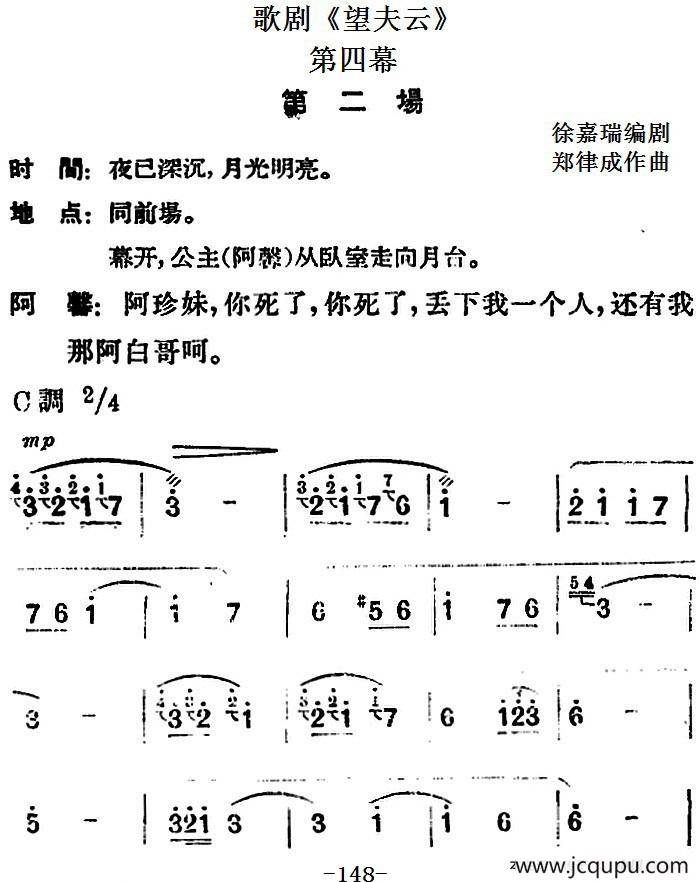 歌剧《望夫云》
第四幕
第 二 場
徐嘉瑞编剧
郑律成作曲
时 間：夜已深沉，月光明亮。
地 点：同前場。
幕开，公主（阿馨）从臥室走向月台。
阿 馨：阿珍妹，你死了，你死了，丢下我一个人，还有我
那阿白哥呵。
C調 2/4
mp
4 3 3 2 2 1 1 7 | 3 - | 3 2 2 1 1 7 7 6 | 1 - | 2 1 1 7
7 6 1 | 1 7 | 6 #5 6 | 1 7 6 | 5 4 3 -
3 - | 3 2 1 | 2 1 7 | 6 1 2 3 | 6 -
5 - | 3 2 1 3 | 3 1 | 1 6 | 6 -
-148-
www.jcqupu.com